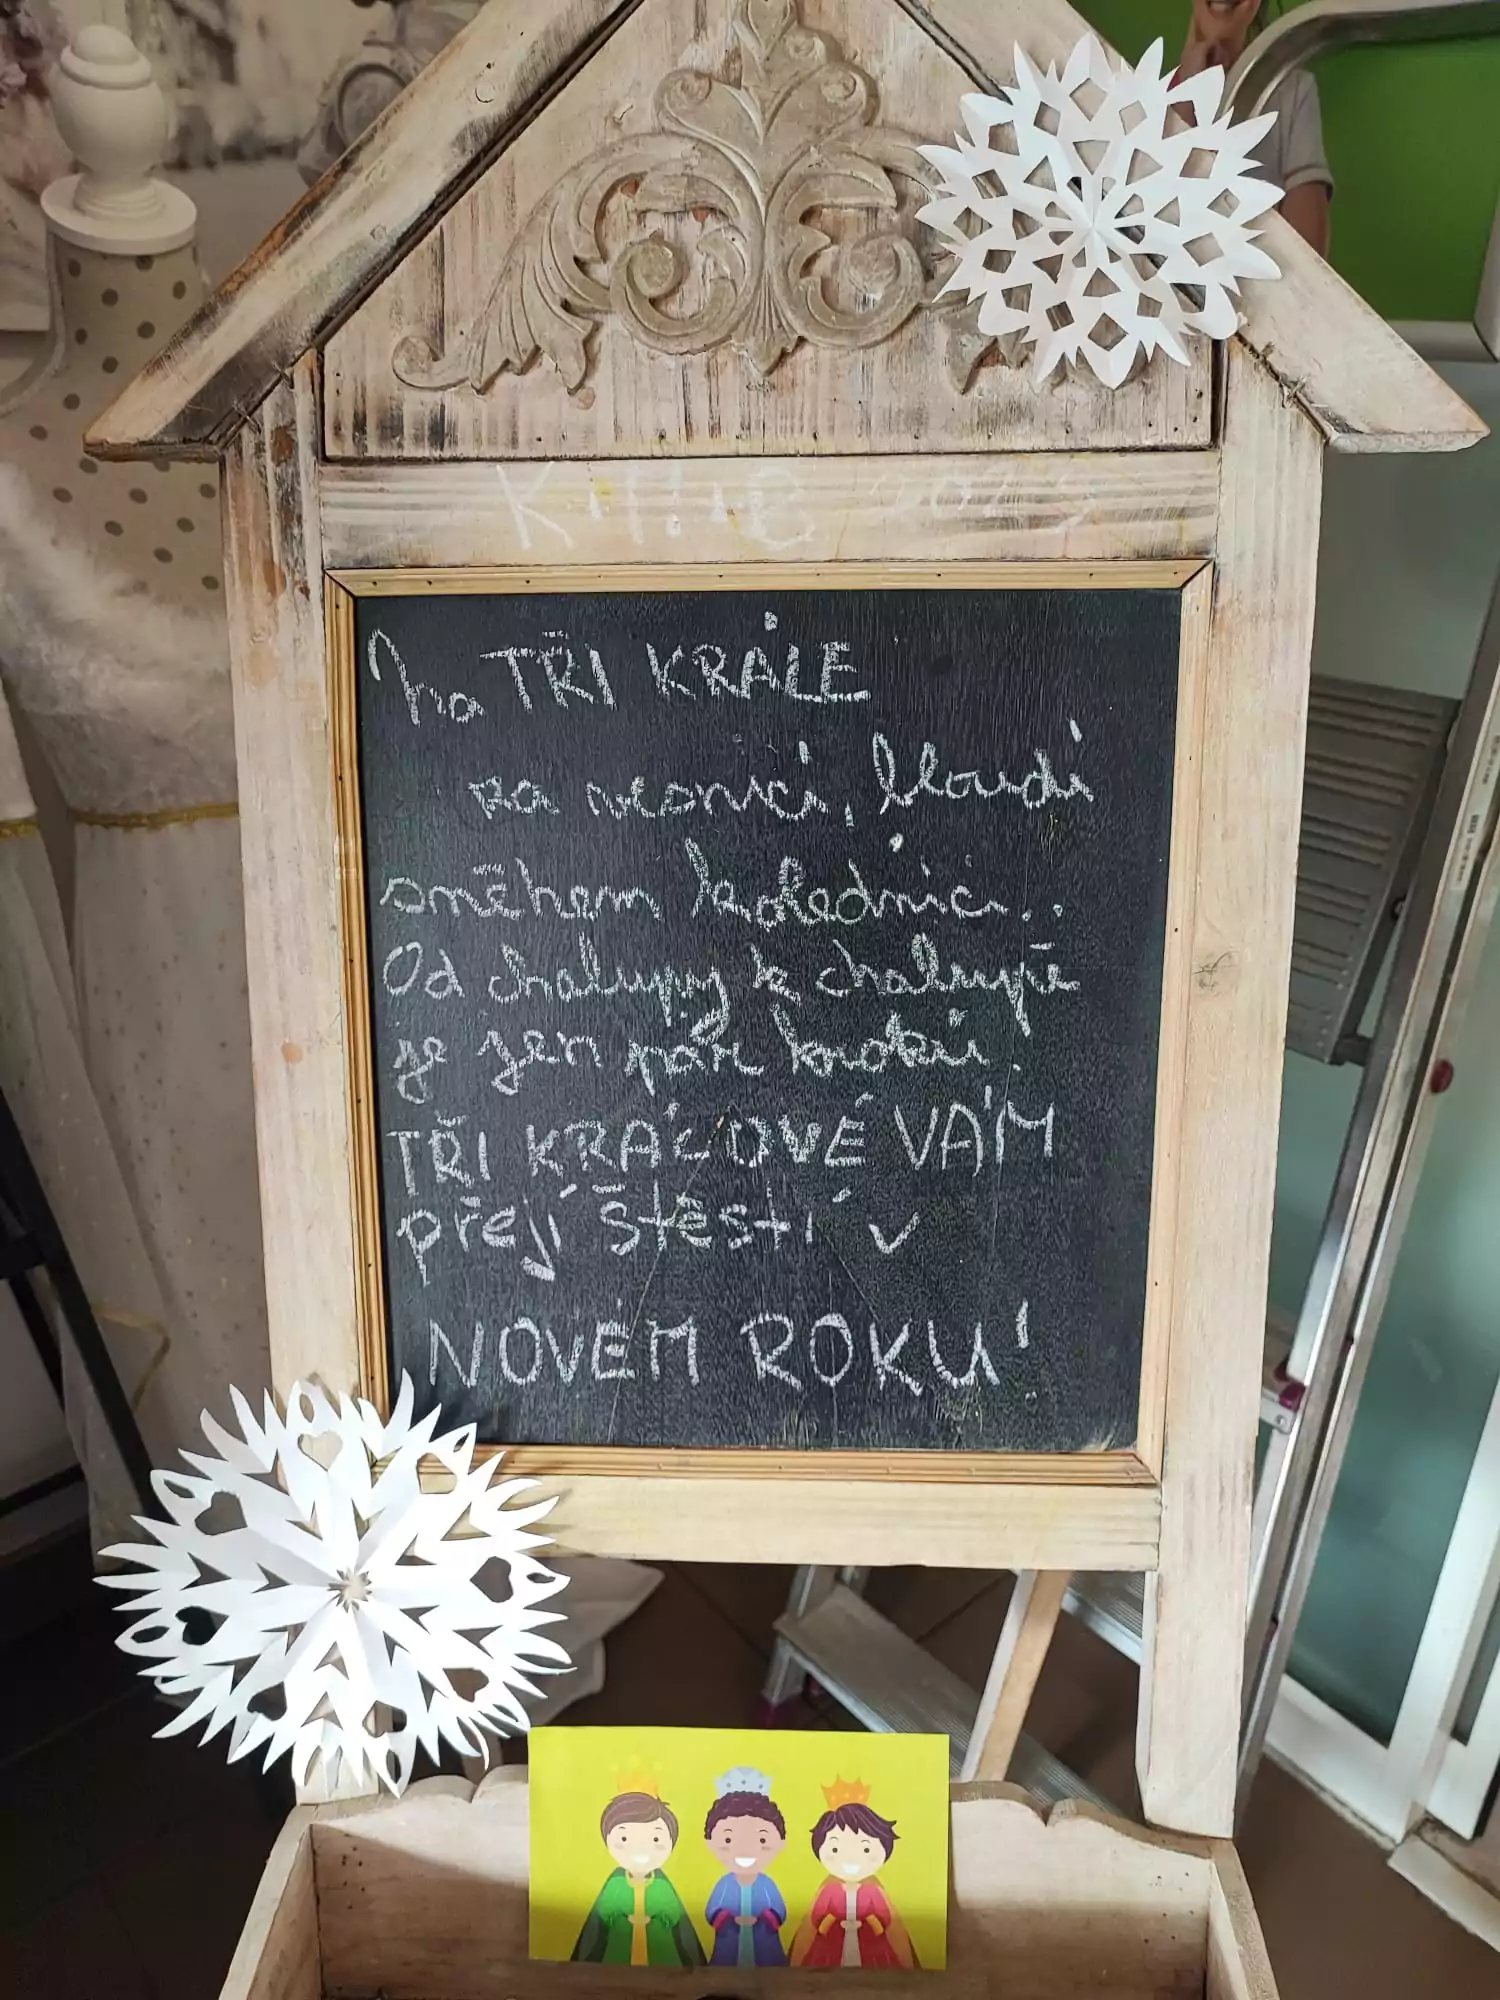 K+M+B 2023
Na TŘI KRÁLE
za vesnicí, bloudí
sněhem koledníci..
Od chalupy k chalupě
je jen pár kroků.
TŘI KRÁLOVÉ VÁM
přejí štěstí v
NOVÉM ROKU!